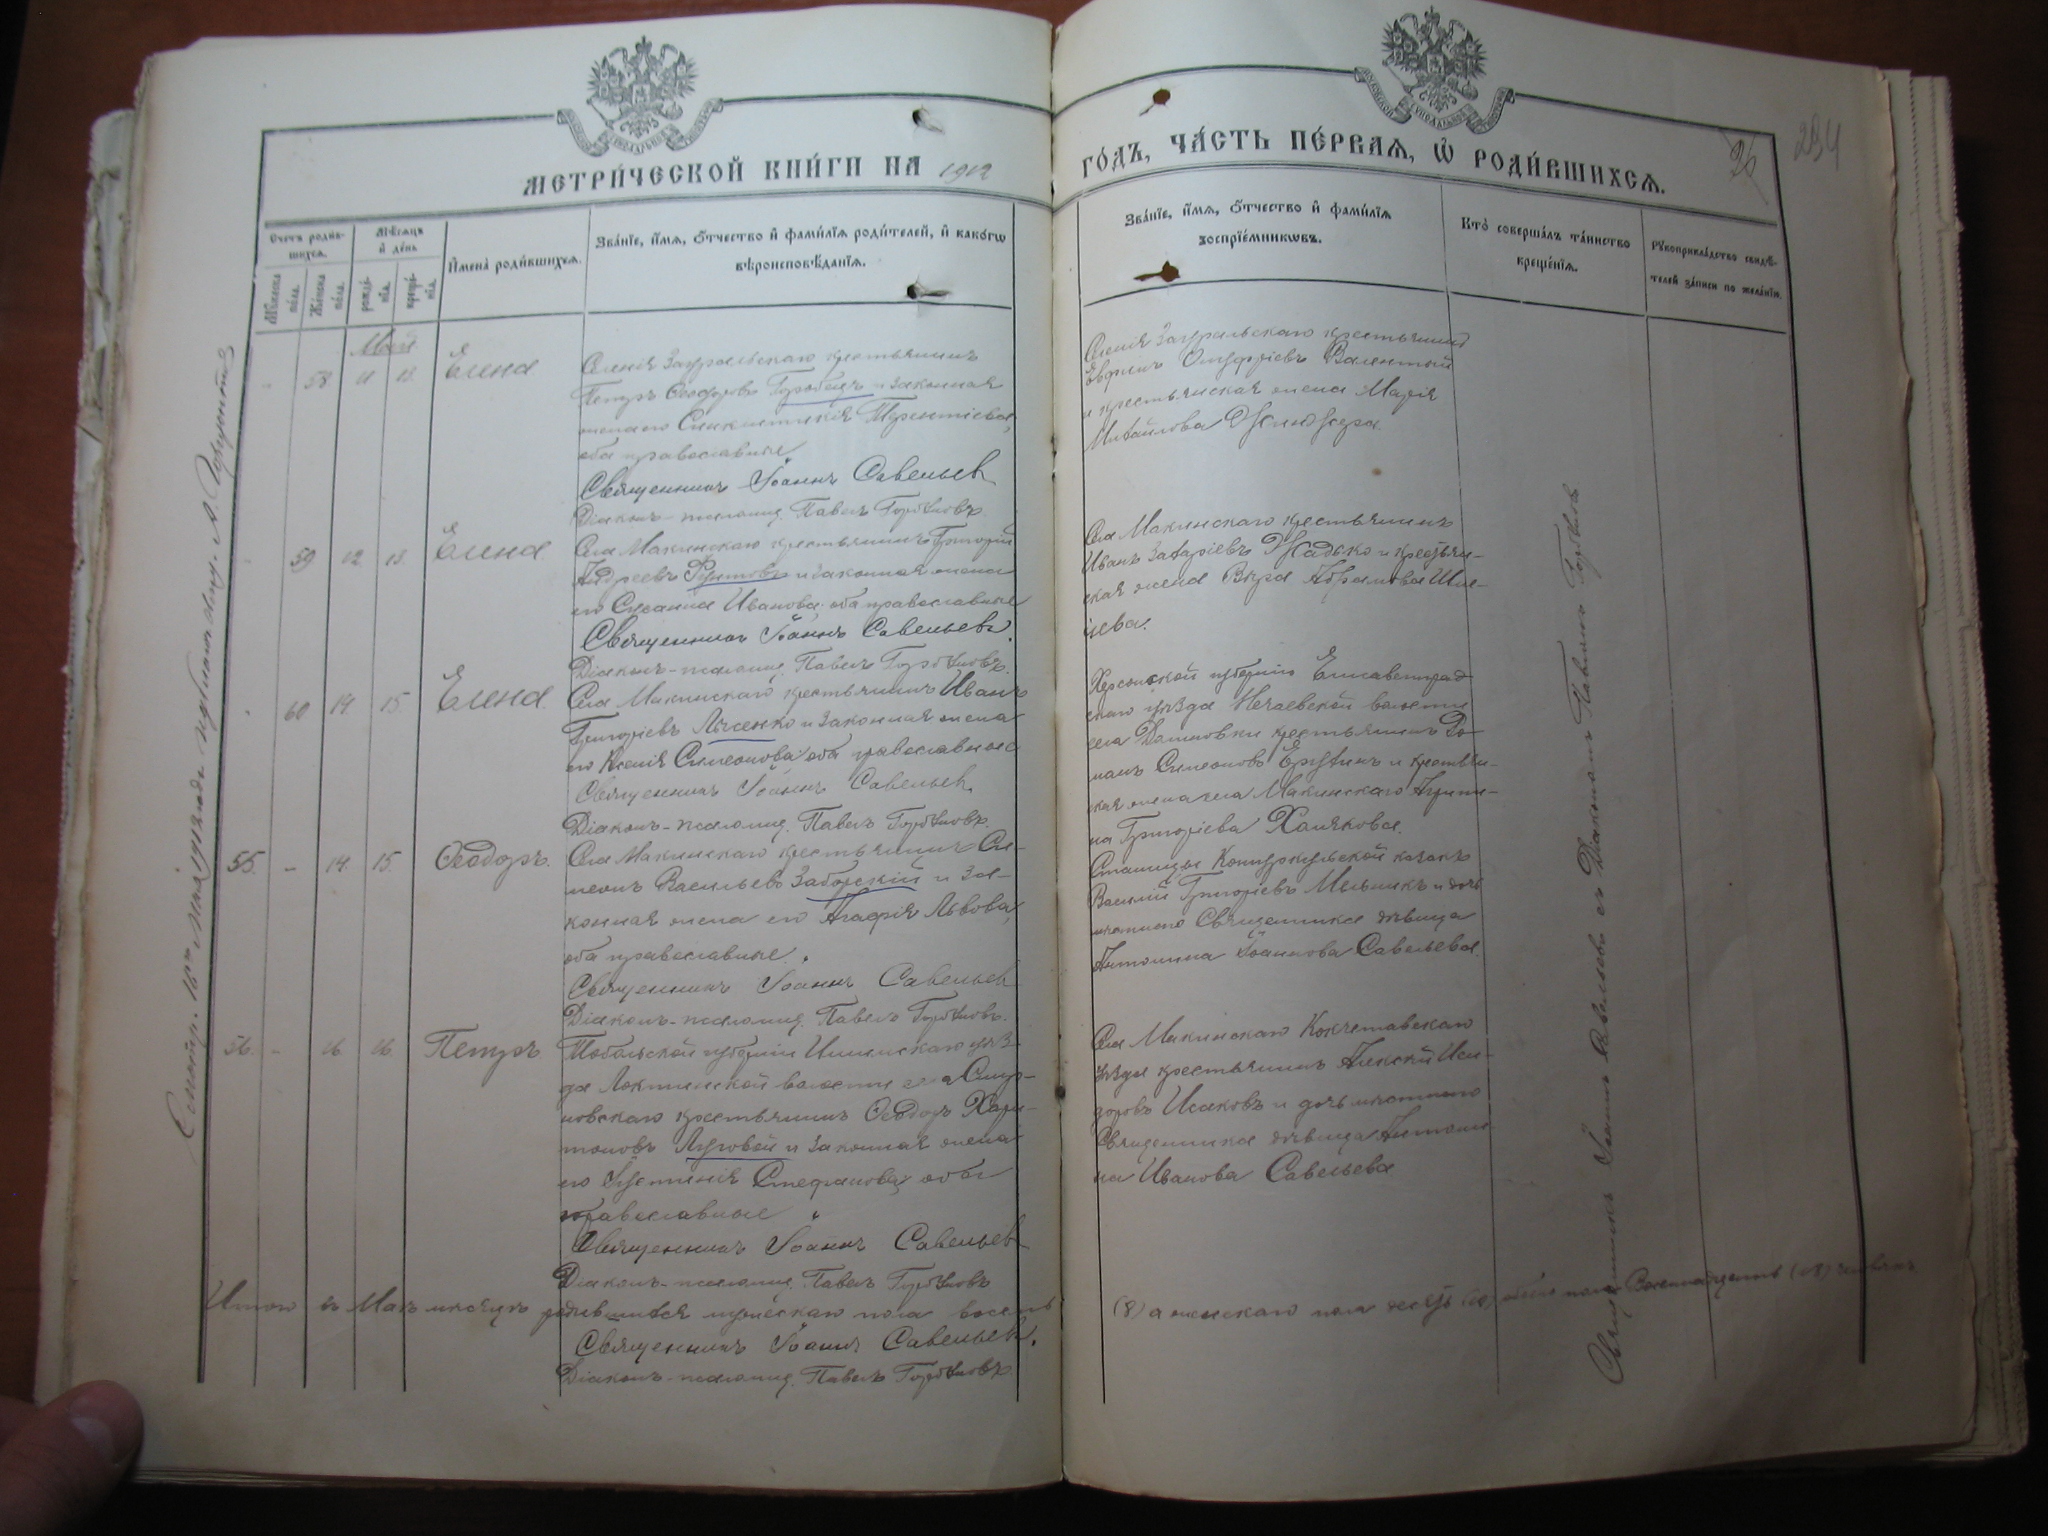 МЕТРИ́ЧЕСКОЙ КНИ́ГИ НА 1912
ГО́ДЪ, ЧА́СТЬ ПЕ́РВАѦ, Ѡ҆ РОДИ́ВШИХСѦ.
26
234
Счетъ роди́в-
шихсѧ.
Мѣ́сѧцъ
и҆ де́нь
И҆мена̀ роди́вшихсѧ.
Зва́нїе, и҆́мѧ, ѻ҆́тчество и҆ фами́лїѧ роди́телей, и҆ како́гѡ
вѣроисповѣ́данїѧ.
Зва́нїе, и҆́мѧ, ѻ҆́тчество и҆ фами́лїѧ
воспрїе́мникѡвъ.
Кто̀ соверша́лъ та́инство
креще́нїѧ.
Рꙋкоприкла́дство свидѣ́-
телей за́писи по жела́нїю.
Мꙋ́жеска
по́ла.
Же́нска
по́ла.
рожде́-
нїѧ.
креще́-
нїѧ.
Май
58 11 13. Елена
Селенія Зауральскаго крестьянинъ
Петръ Ѳеодоровъ Горобецъ и законная
жена его Синклитикія Терентіева,
оба православные
Священникъ Іоаннъ Савельевъ
Діаконъ-псаломщ. Павелъ Горбуновъ.
Селенія Зауральскаго крестьянинъ
Онуфріевъ
и крестьянская жена Марія
Михайлова
59 12 13. Елена
Села Макинскаго крестьянинъ Григорій
Андреевъ и законная жена
его Сусанна Иванова оба православные
Священникъ Іоаннъ Савельевъ.
Діаконъ-псаломщ. Павелъ Горбуновъ.
Села Макинскаго крестьянинъ
Иванъ Захаріевъ Жадько и крестьян-
ская жена Вѣра Абрамова
60 14 15 Елена.
Села Макинскаго крестьянинъ Иванъ
Григорьевъ Лысенко и законная жена
его Ксенія Симеонова оба православные
Священникъ Іоаннъ Савельевъ.
Діаконъ-псаломщ. Павелъ Горбуновъ.
Херсонской губерніи Елисаветград
скаго уѣзда Нечаевской волости
села крестьянинъ Ро-
манъ Симеоновъ и крестьян-
ская жена села Макинскаго Агрипи-
на Григоріева Халякова.
55. - 14. 15. Ѳеодоръ.
Села Макинскаго крестьянинъ Си-
меонъ Васильевъ Заборскій и за-
конная жена его Агафія Львова,
оба православные.
Священникъ Іоаннъ Савельевъ
Діаконъ-псаломщ. Павелъ Горбуновъ.
Станицы казакъ
Василій Григоріевъ Мельникъ и дочь
мѣстнаго Священника дѣвица
Антонина Іоаннова Савельева.
56. - 16. 16. Петръ
Тобольской губерніи Ишимскаго уѣз-
да Локтинской волости села
крестьянинъ Ѳеодоръ Хари-
тоновъ Луговой и законная жена
его Іустинія Стефанова, оба
православные
Священникъ Іоаннъ Савельевъ
Діаконъ-псаломщ. Павелъ Горбуновъ
Села Макинскаго Кокчетавскаго
уѣзда крестьянинъ Алексій Иси-
доровъ Исаковъ и дочь мѣстнаго
Священника дѣвица Антони-
на Иванова Савельева
Итого въ Маѣ мѣсяцѣ родившихся мужескаго пола восемь
(8) а женскаго пола десять (10) обоего пола Восемнадцать (18) человѣкъ
Священникъ Іоаннъ Савельевъ.
Діаконъ-псаломщ. Павелъ Горбуновъ.
Священникъ Іоаннъ Савельевъ съ Діакономъ Павломъ Горбуновъ